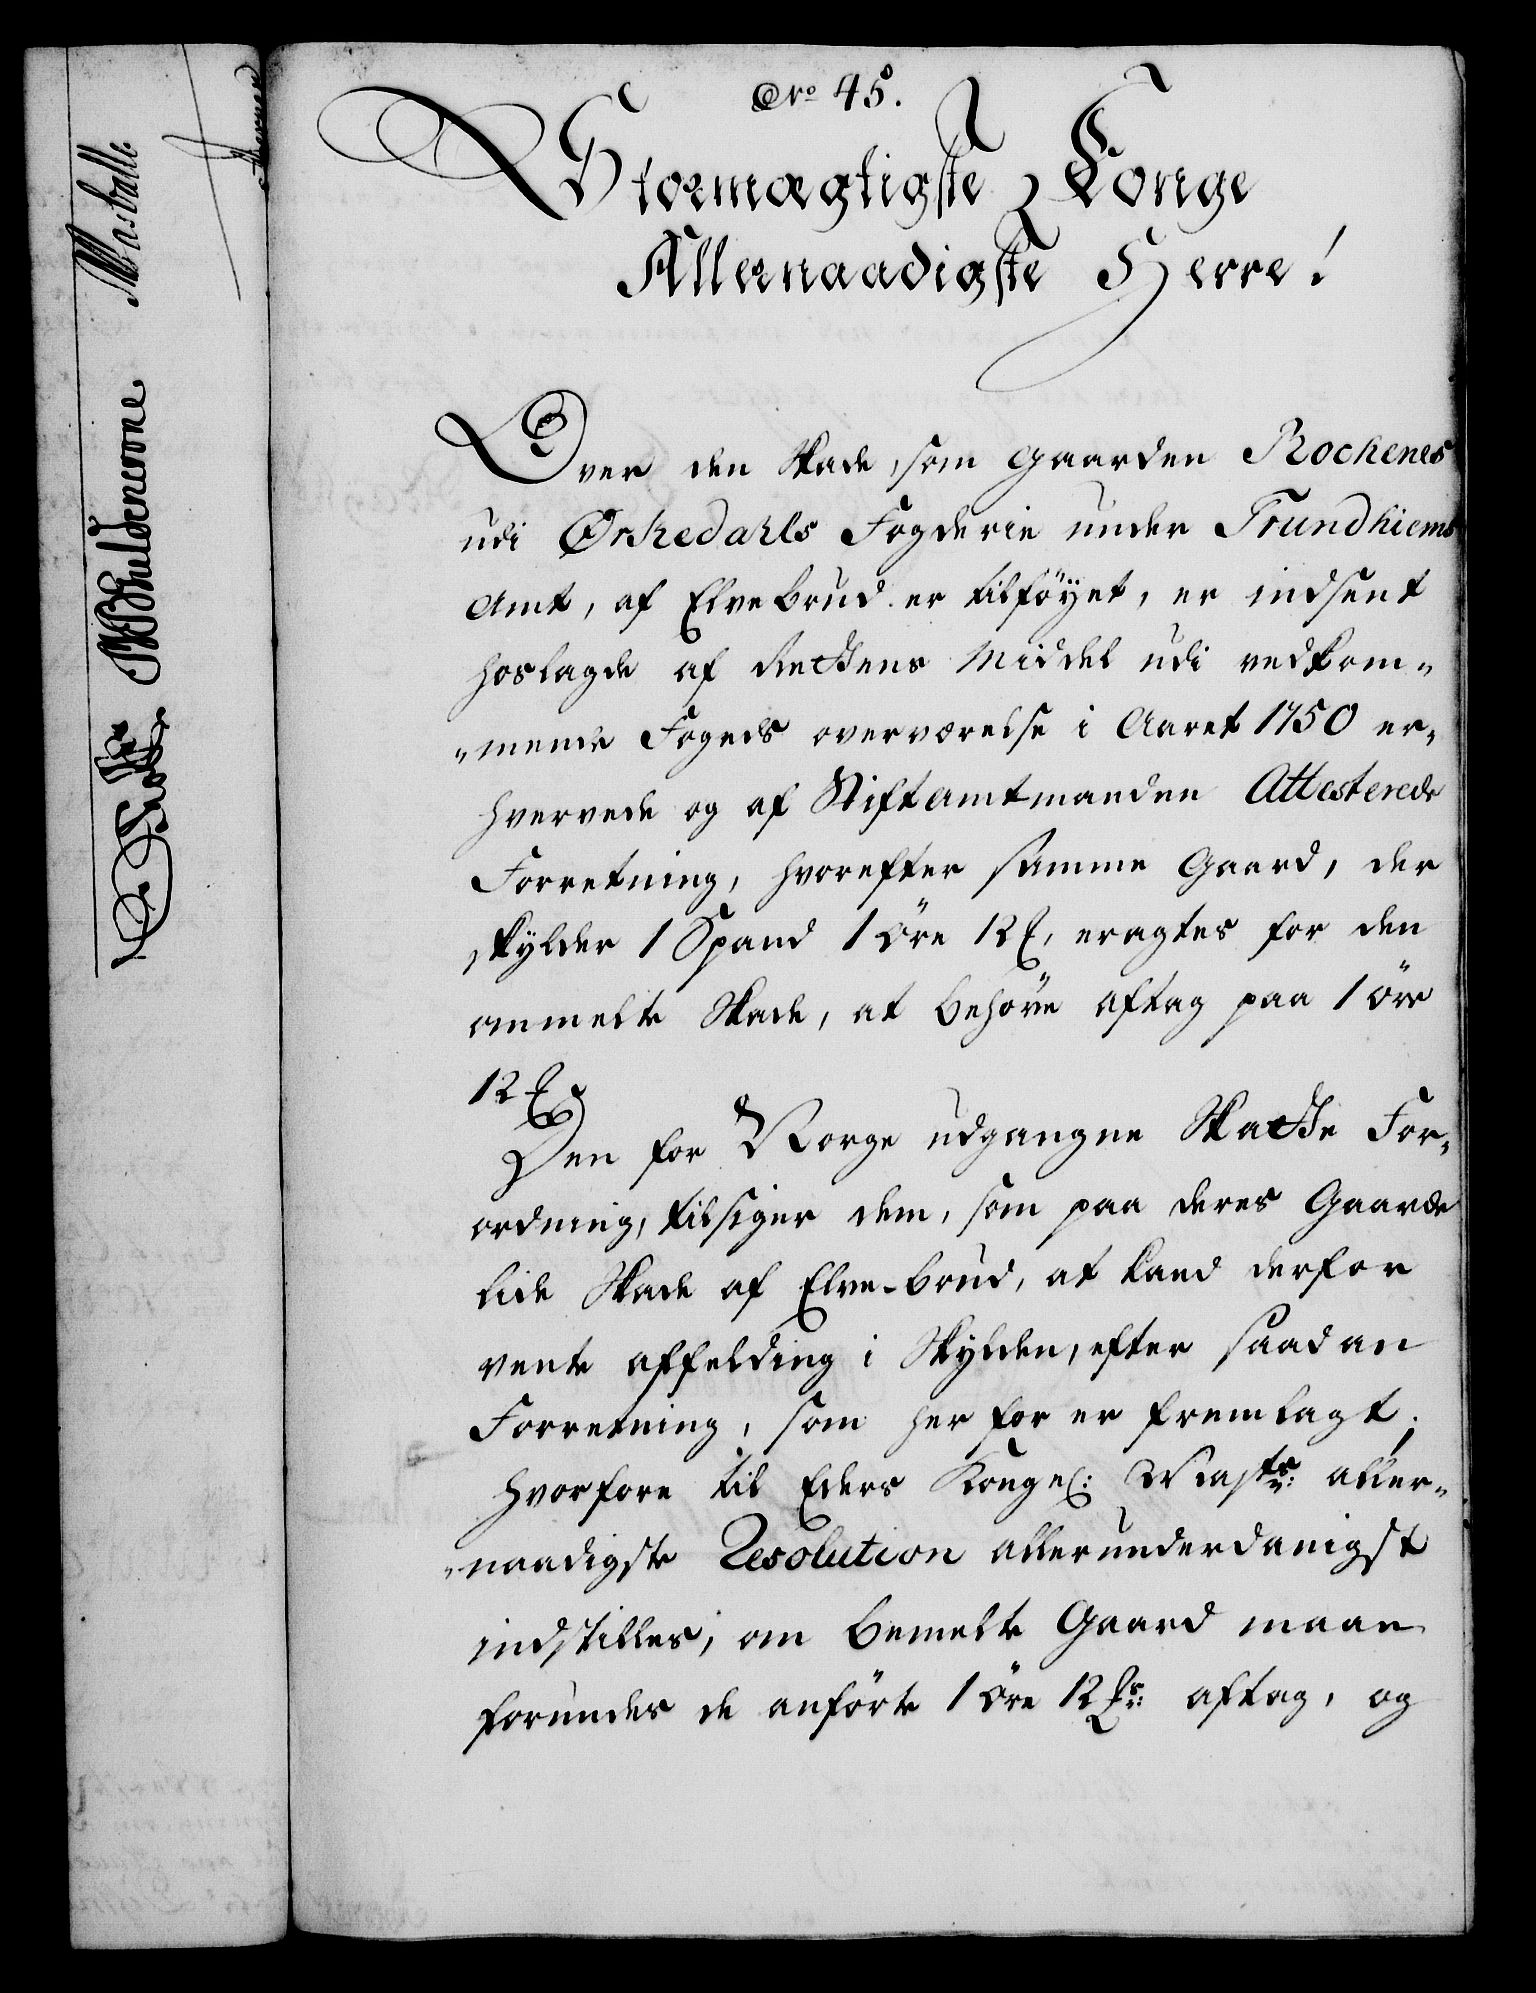 No. 45.
Stormægtigste Konge
Allernaadigste Herre!
Over den Skade, som Gaarden Rochenes
udi Ørkedahls Fogderie under Trundhiems
Amt, af Elvebrud er tilføyet, er indsent
hoslagde af Rettens Middel udi vedkom-
-mende Fogeds overværelse i Aaret 1750 er-
hvervede og af Stiftamtmanden Attesterede
Forretning, hvorefter samme Gaard, der
skylder 1 Spand 1 Øre 12 &, eragtes for den
ommelte Skade, at behøve aftag paa 1 Øre
12 &
Den for Norge udgangne Skatte For-
ordning, tilsiger dem, som paa deres Gaarde
lide Skade af Elve-brud, at kand derfor
vente affelding i Skylden, efter saadan
Forretning, som her for er fremlagt;
hvorfore til Eders Kongel: Mayts: aller-
-naadigste Resolution allerunderdanigst
indstilles, om bemelte Gaard maae
forundes de anførte 1 Øre 12 &r: aftag, og